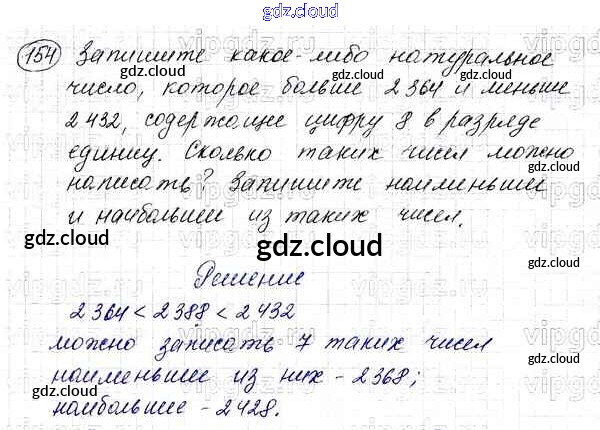 gdz.cloud
154 Запишите какое-либо натуральное
число, которое больше 2 364 и меньше
2 432, содержащее цифру 8 в разряде
единиц. Сколько таких чисел можно
написать? Запишите наименьшее
и наибольшее из таких чисел.
gdz.cloud
Решение
2 364 < 2 388 < 2 432
можно записать 7 таких чисел
наименьшее из них - 2 368;
наибольшее - 2 428.